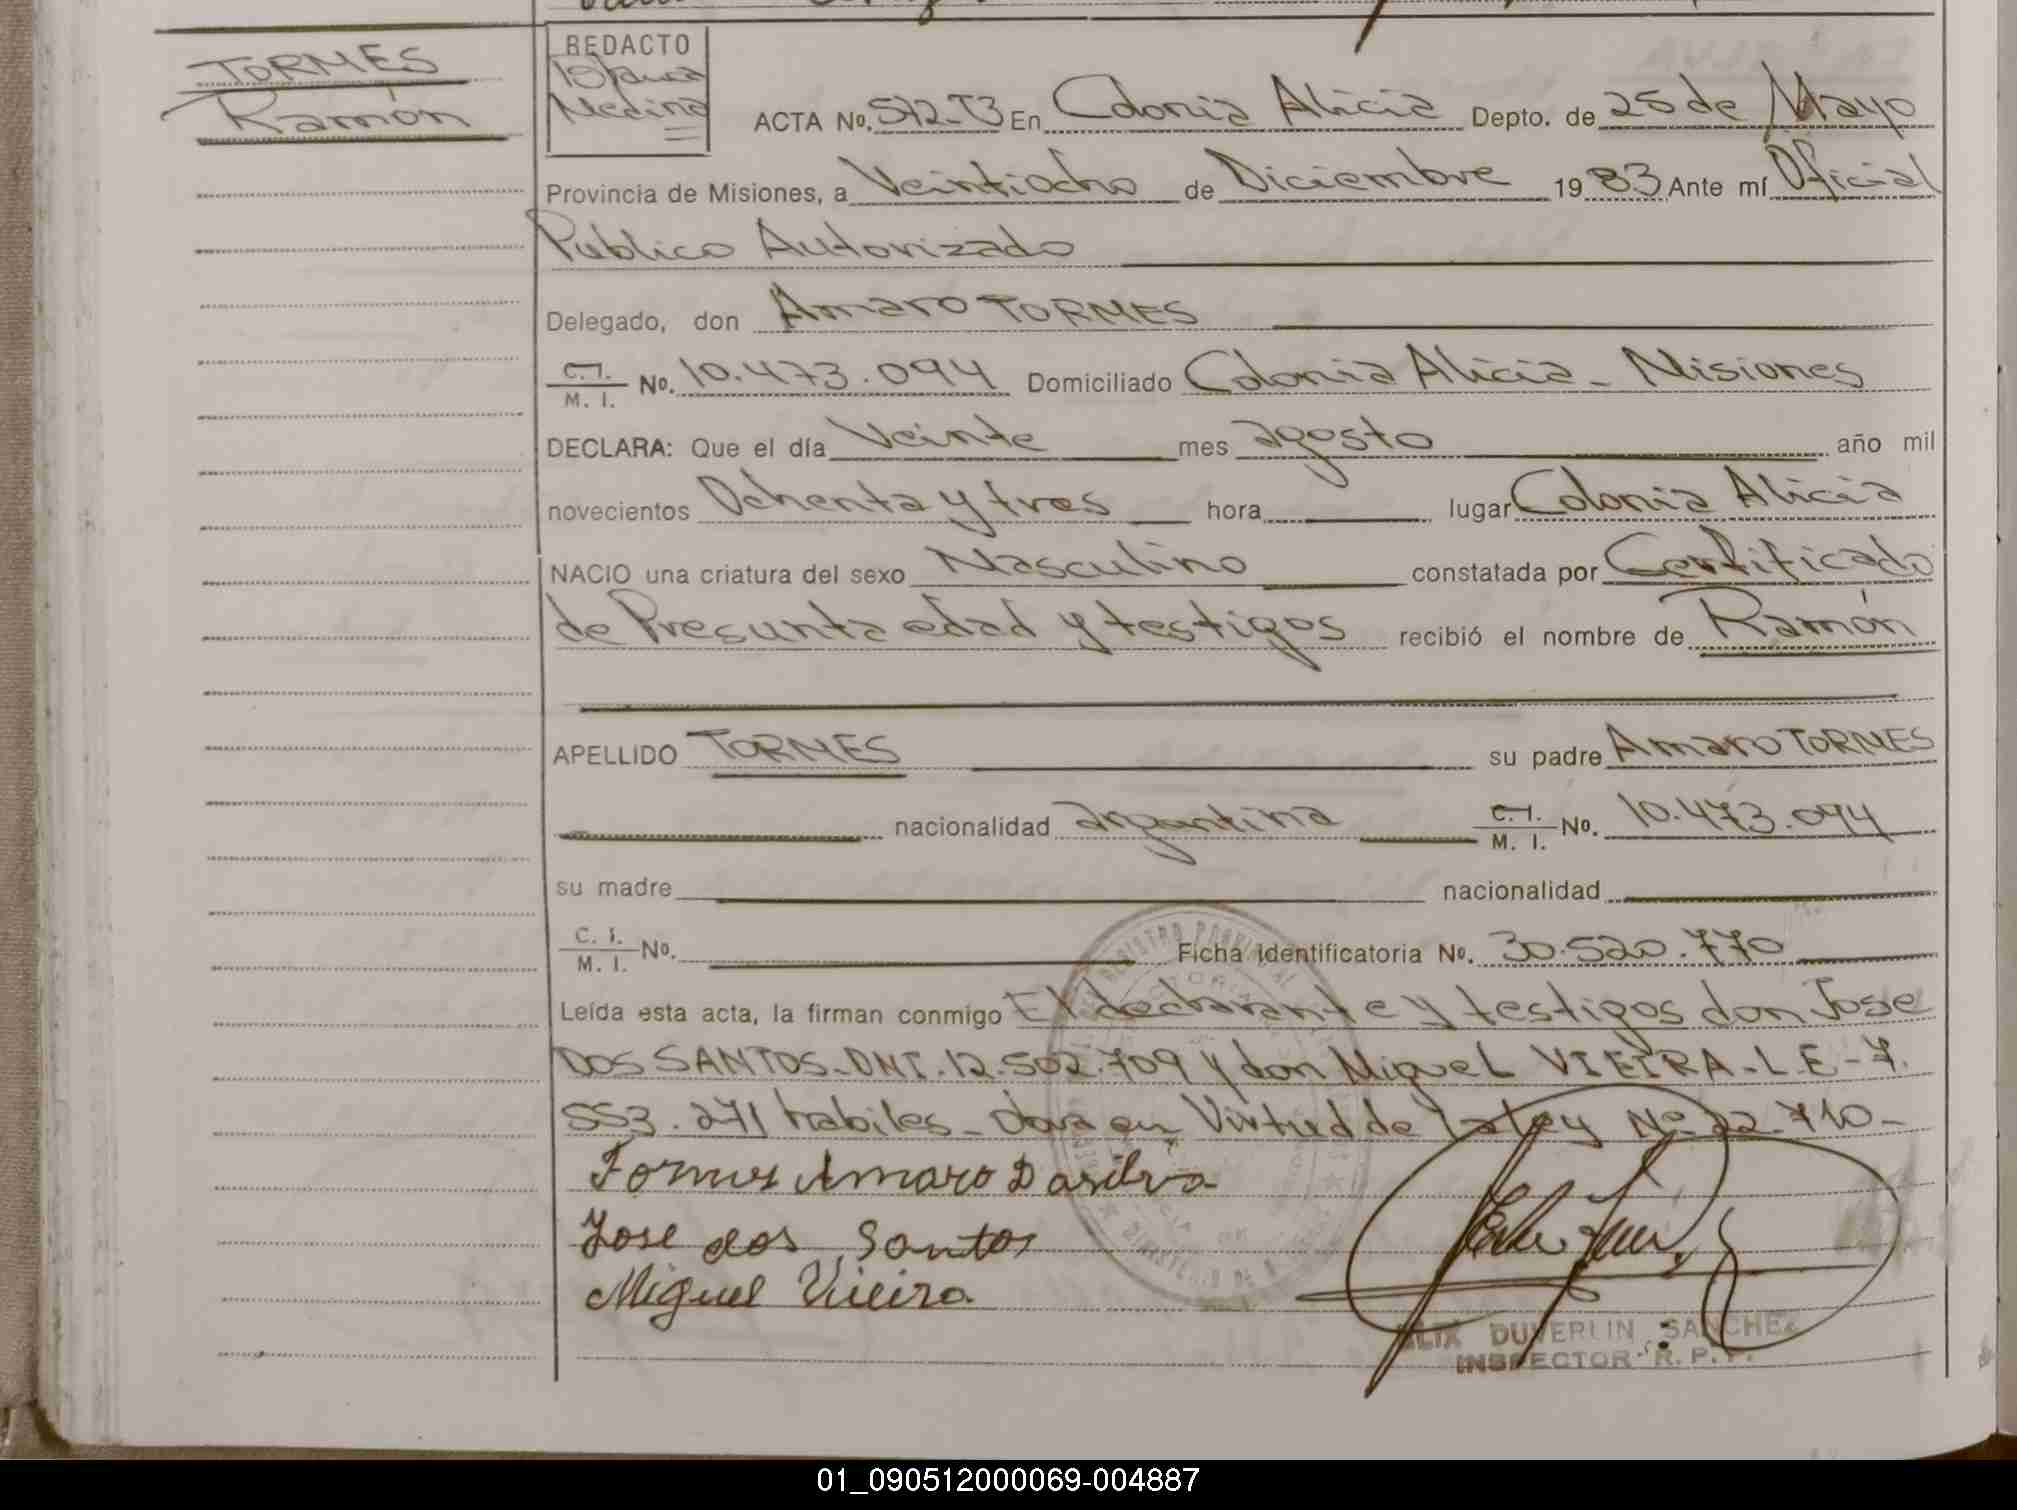 TORMES
Ramón
REDACTO
Blanca
Medina
ACTA No. 512-T3 En Colonia Alicia Depto. de 25 de Mayo
Provincia de Misiones, a Veintiocho de Diciembre 1983 Ante mí Oficial
Publico Autorizado
Delegado, don Amaro TORMES
C.I. M. I. No. 10.473.094 Domiciliado Colonia Alicia - Misiones
DECLARA: Que el día Veinte mes agosto año mil
novecientos Ochenta y tres hora lugar Colonia Alicia
NACIO una criatura del sexo Masculino constatada por Certificado
de Presunta edad y testigos recibió el nombre de Ramón
APELLIDO TORMES su padre Amaro TORMES
nacionalidad argentina C.I. M. I. No. 10.473.094
su madre nacionalidad
C. I. M. I. No. Ficha identificatoria No. 30.520.770
Leída esta acta, la firman conmigo El declarante y testigos don Jose
DOS SANTOS-DNI.12.502.709 y don Miguel VIEIRA-L.E-7.
553.271 habiles- en Virtud de la ley No 22.710-
Tormes Amaro Dasilva
Jose dos Santos
Miguel Vieira
FELIX DUVERLIN SANCHEZ
INSPECTOR R.P.P.
01_090512000069-004887